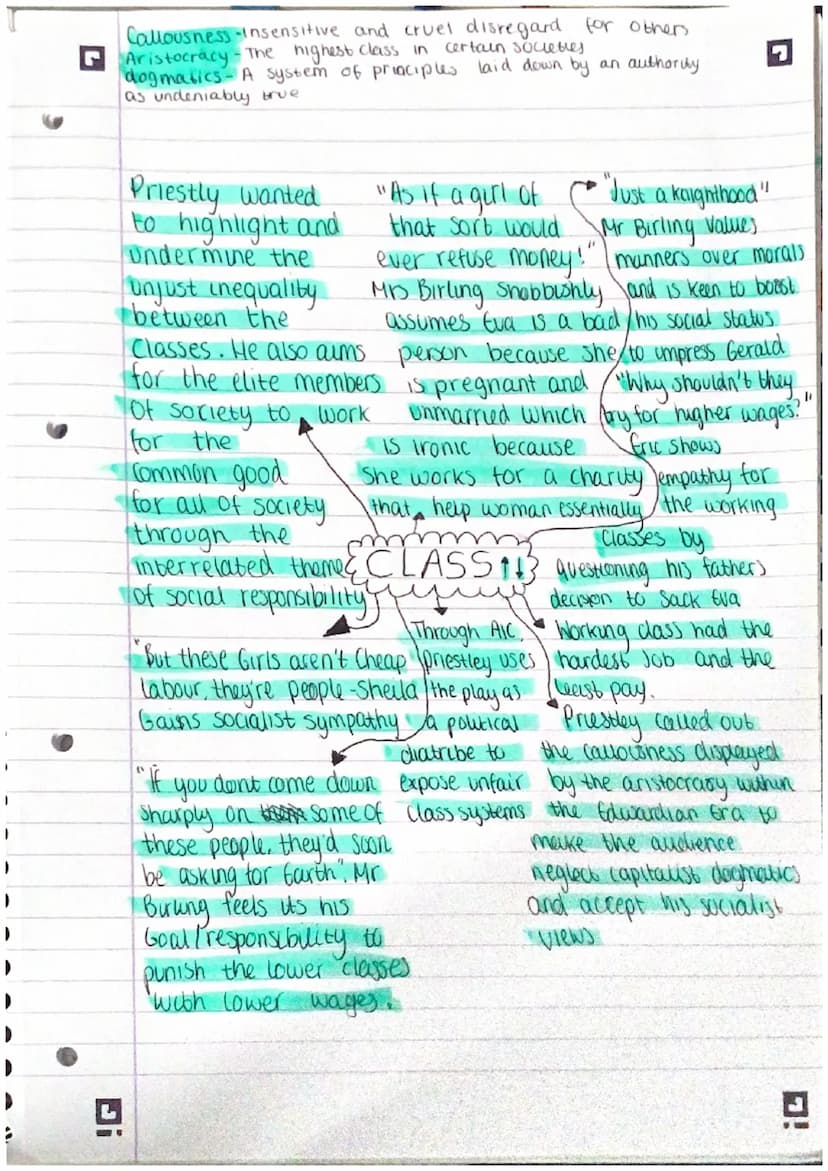 Callousness - insensitive and cruel disregard for others
Aristocracy - The highest class in certain societies
dogmatics - A system of principles laid down by an authority
as undeniably true
Priestly wanted
to highlight and
undermine the
unjust inequality
between the
Classes. He also aims
for the elite members
of society to work
for the
common good
for all of society
through the
interrelated theme
of social responsibility
"As if a girl of
that sort would
ever refuse money!"
Mrs Birling Snobbishly
assumes Eva is a bad
person because she
is pregnant and
unmarried which
is ironic because
she works for a charity
that help woman essentially
"Just a knighthood"
Mr Birling Values
manners over morals
and is keen to boast
his social status
to impress Gerald
"Why shouldn't they
try for higher wages?"
Eric shows
empathy for
the working
classes by
questioning his fathers
decision to sack Eva
CLASS ↑↓
Working class had the
hardest Job and the
least pay.
"But these Girls aren't Cheap
labour, they're people - Sheila
Gains socialist sympathy
Through AIC,
priestley uses
the play as
a political
diatribe to
expose unfair
Class systems
Priestley called out
the callousness displayed
by the aristocracy within
the Edwardian Era to
make the audience
neglect capitalist dogmatics
and accept his socialist
views
"If you dont come down
sharply on some of
these people, they'd soon
be asking for Earth". Mr
Birling feels its his
Goal/responsibility to
punish the lower classes
with lower wages.